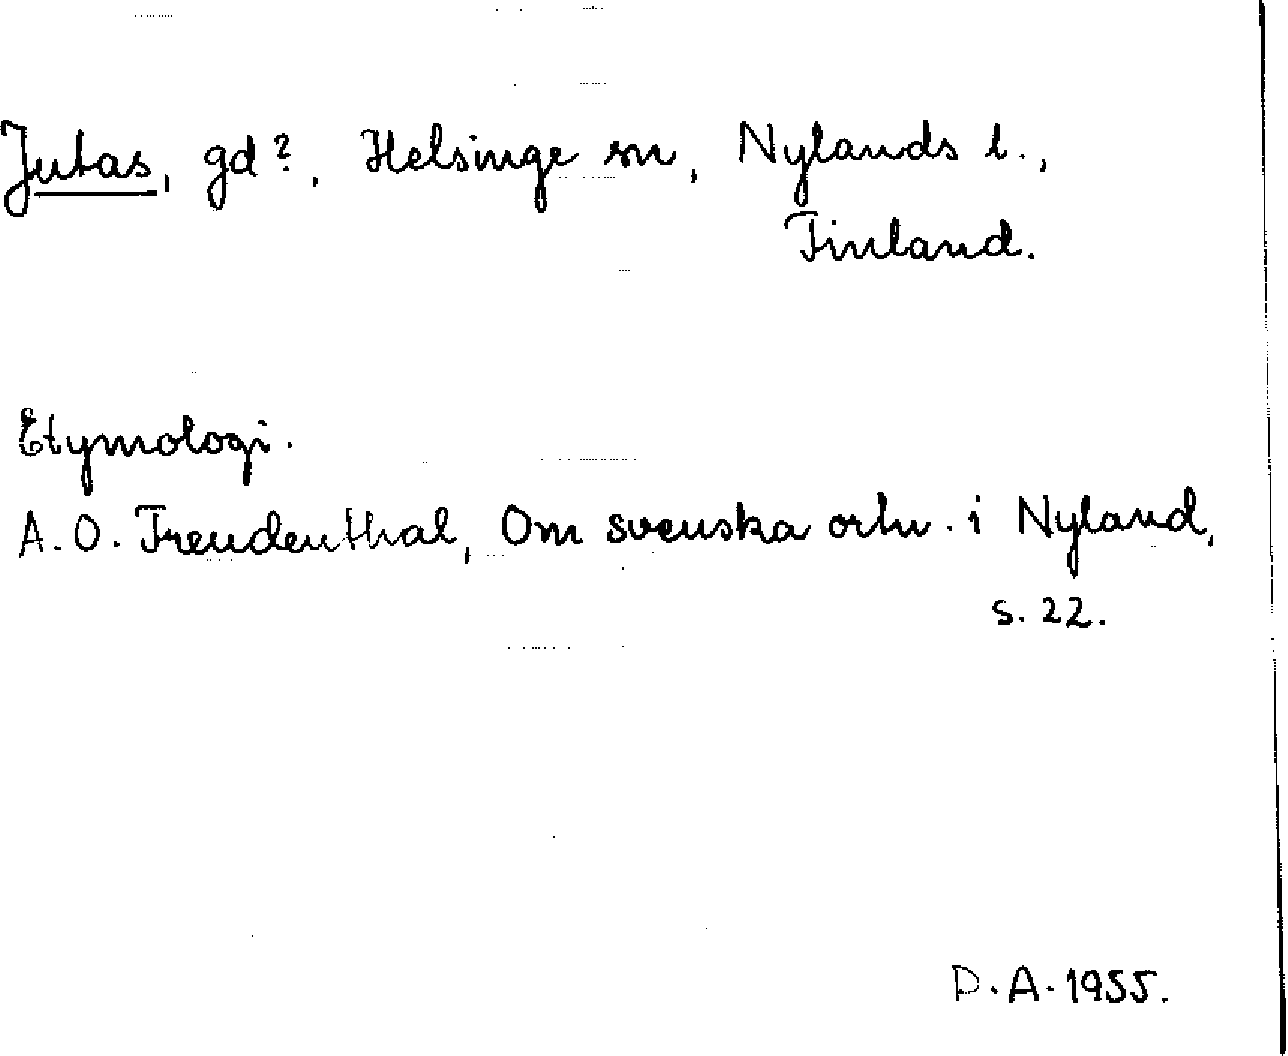 Jutas, gd?, Helsinge sn, Nylands l.,
Finland.
Etymologi.
A. O. Freudenthal, Om svenska ortn. i Nyland,
s. 22.
D. A. 1955.